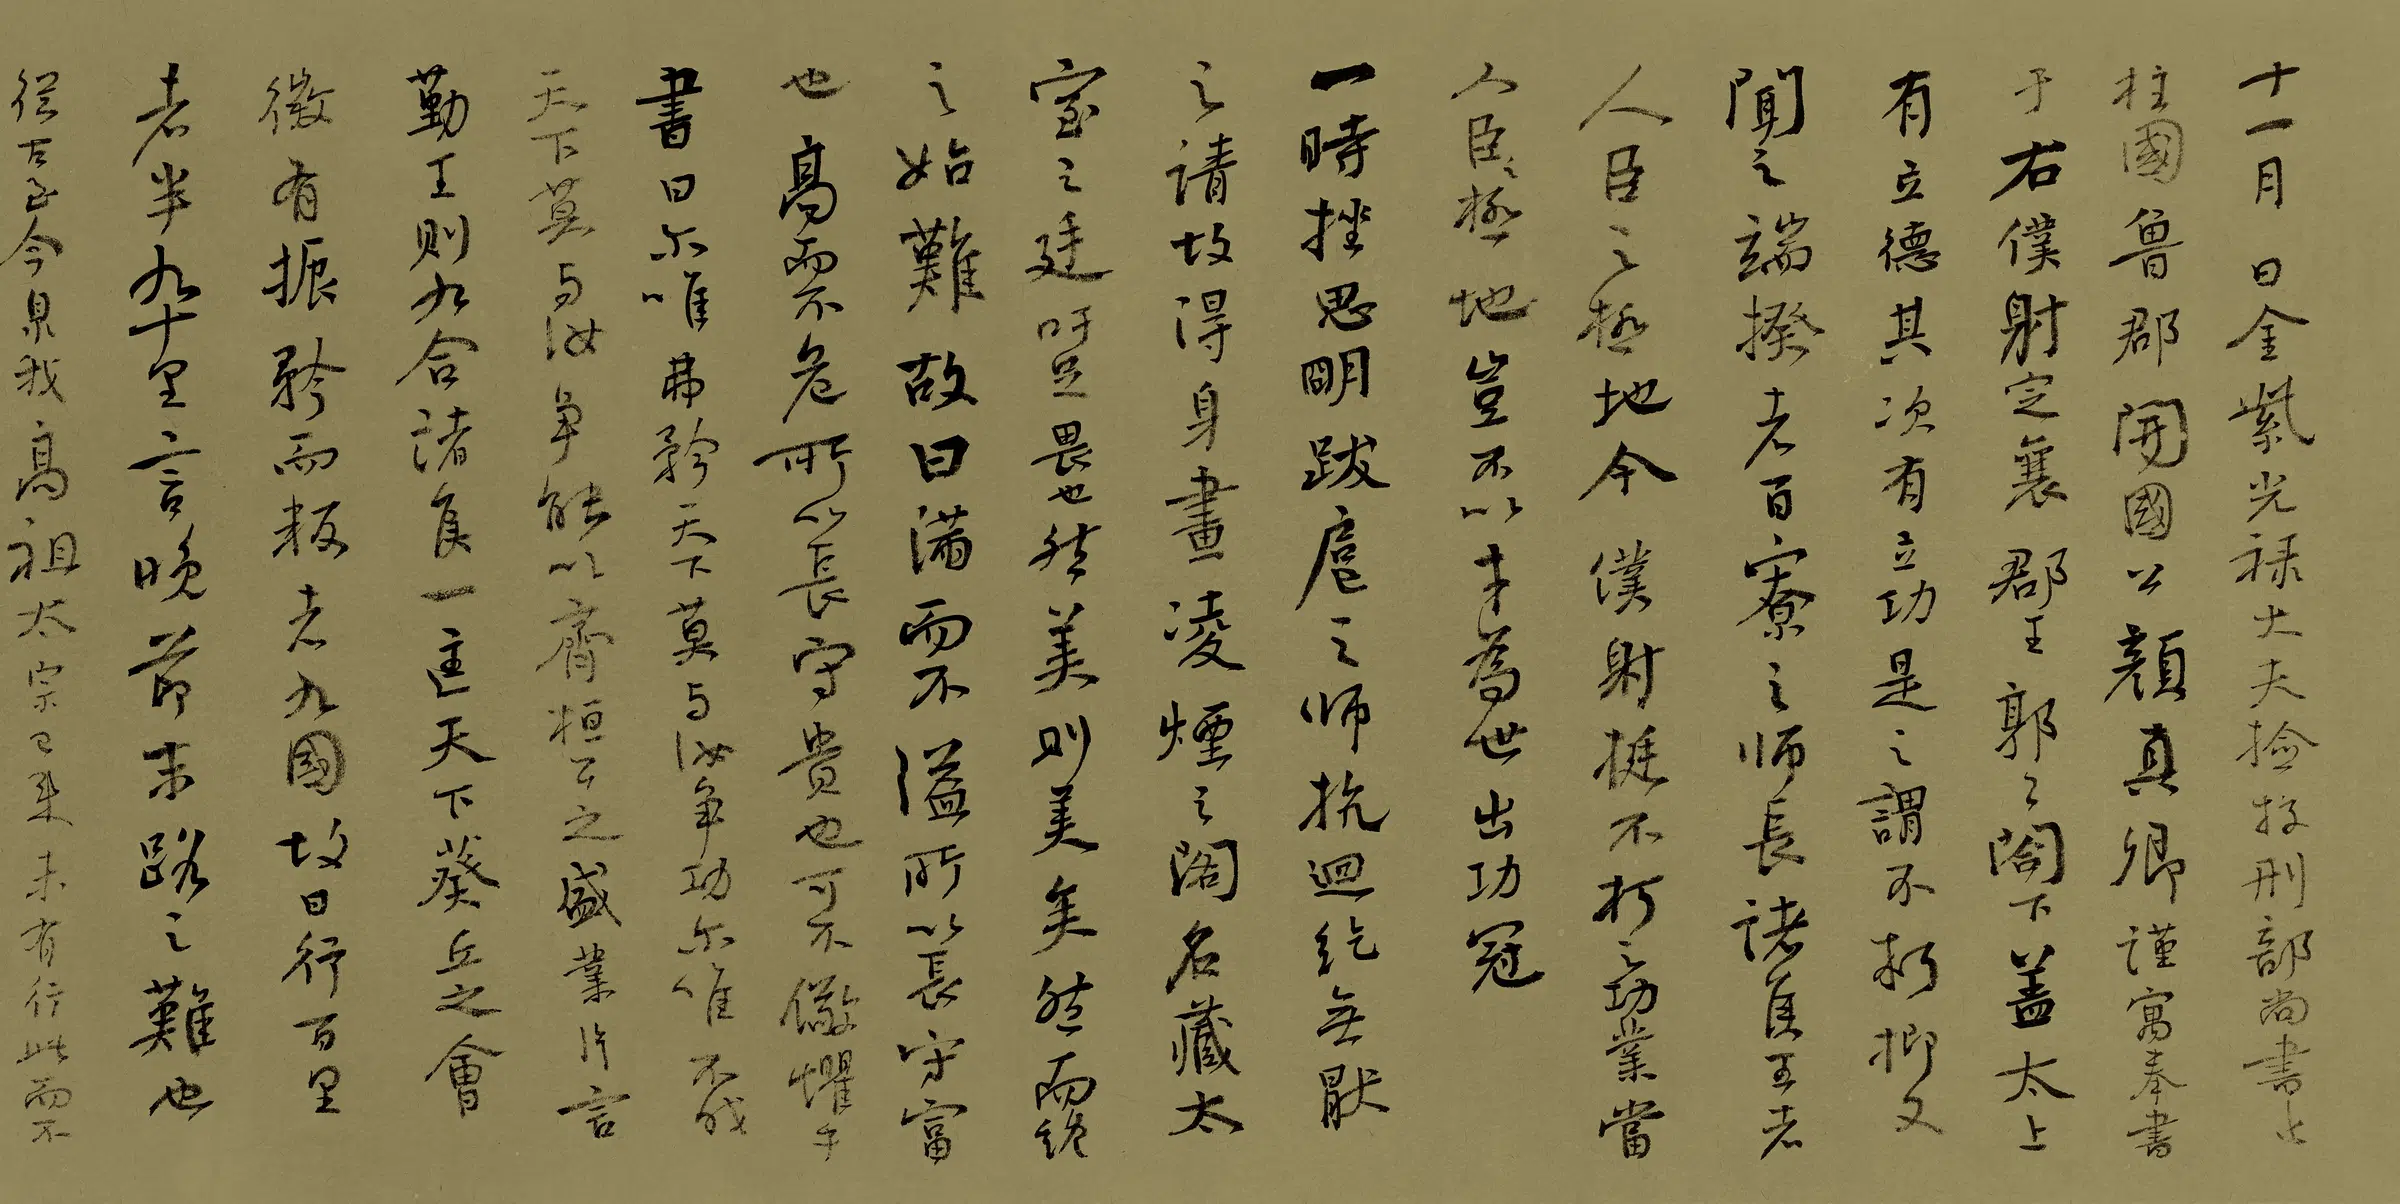 十一月日金紫光禄大夫撿挍刑部尚書上
柱國魯郡開國公顏真卿謹寓奉書
于右僕射定襄郡王郭公閣下盖太上
有立德其次有立功是之謂不朽抑又
聞之端揆者百寮之師長諸侯王者
人臣之極地今僕射挺不朽之功業當
人臣之極地豈不以才為世出功冠
一時挫思明跋扈之师抗迴紇無猒
之請故得身畫凌煙之閣名藏太
室之廷吁足畏也然美則美矣然而終
之始難故曰滿而不溢所以長守富
也高而不危所以長守貴也可不儆懼乎
書曰尔唯弗矜天下莫与汝争功尔唯不伐
天下莫与汝争能以齊桓公之盛業片言
勤王則九合諸侯一匡天下葵丘之會
微有振矜而叛者九國故曰行百里
者半九十里言晚節末路之難也
從古至今泉我高祖太宗已来未有行此而不